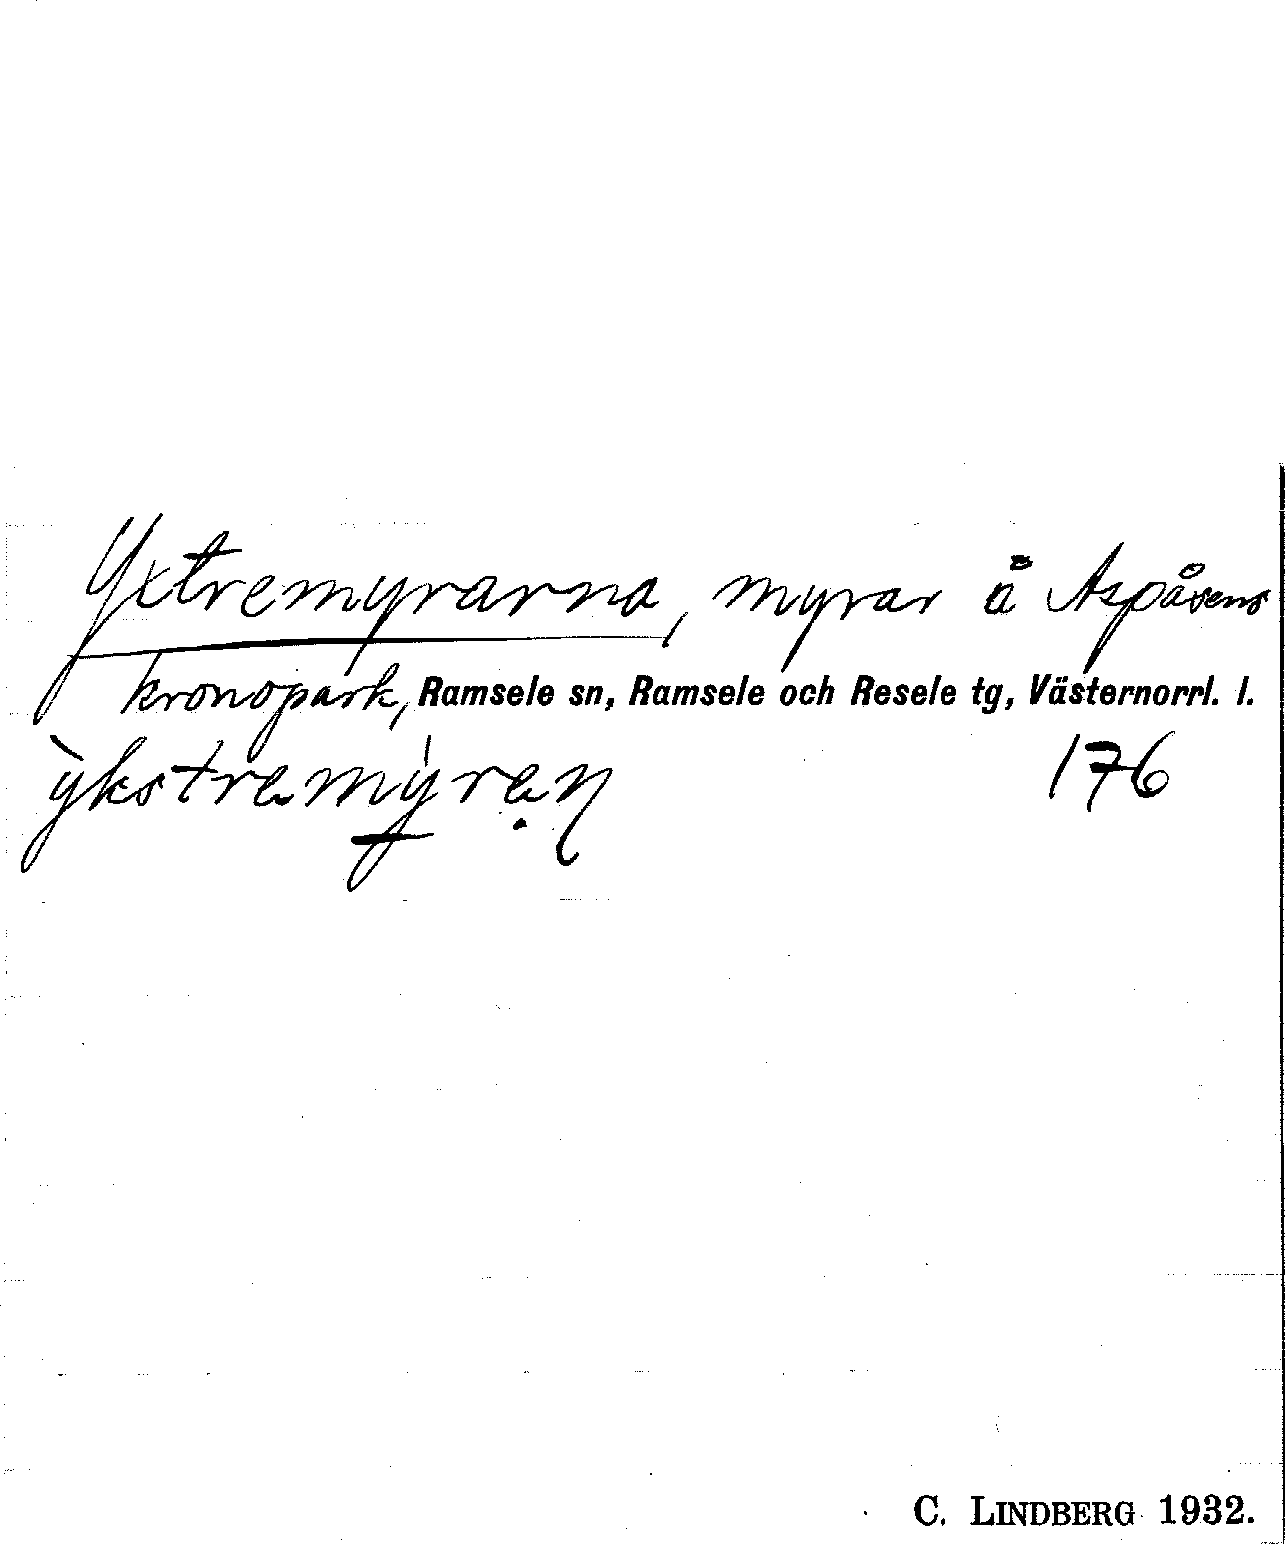 Yxtremyrarna, myrar å Aspåsens
kronopark, Ramsele sn, Ramsele och Resele tg, Västernorrl. l.
ỳkstramýrạṇ 176
C. LINDBERG 1932.